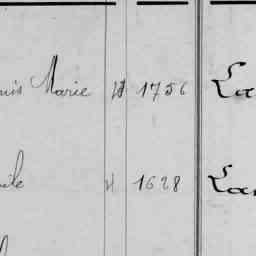 uis Marie 1756 La
ile 1628 La